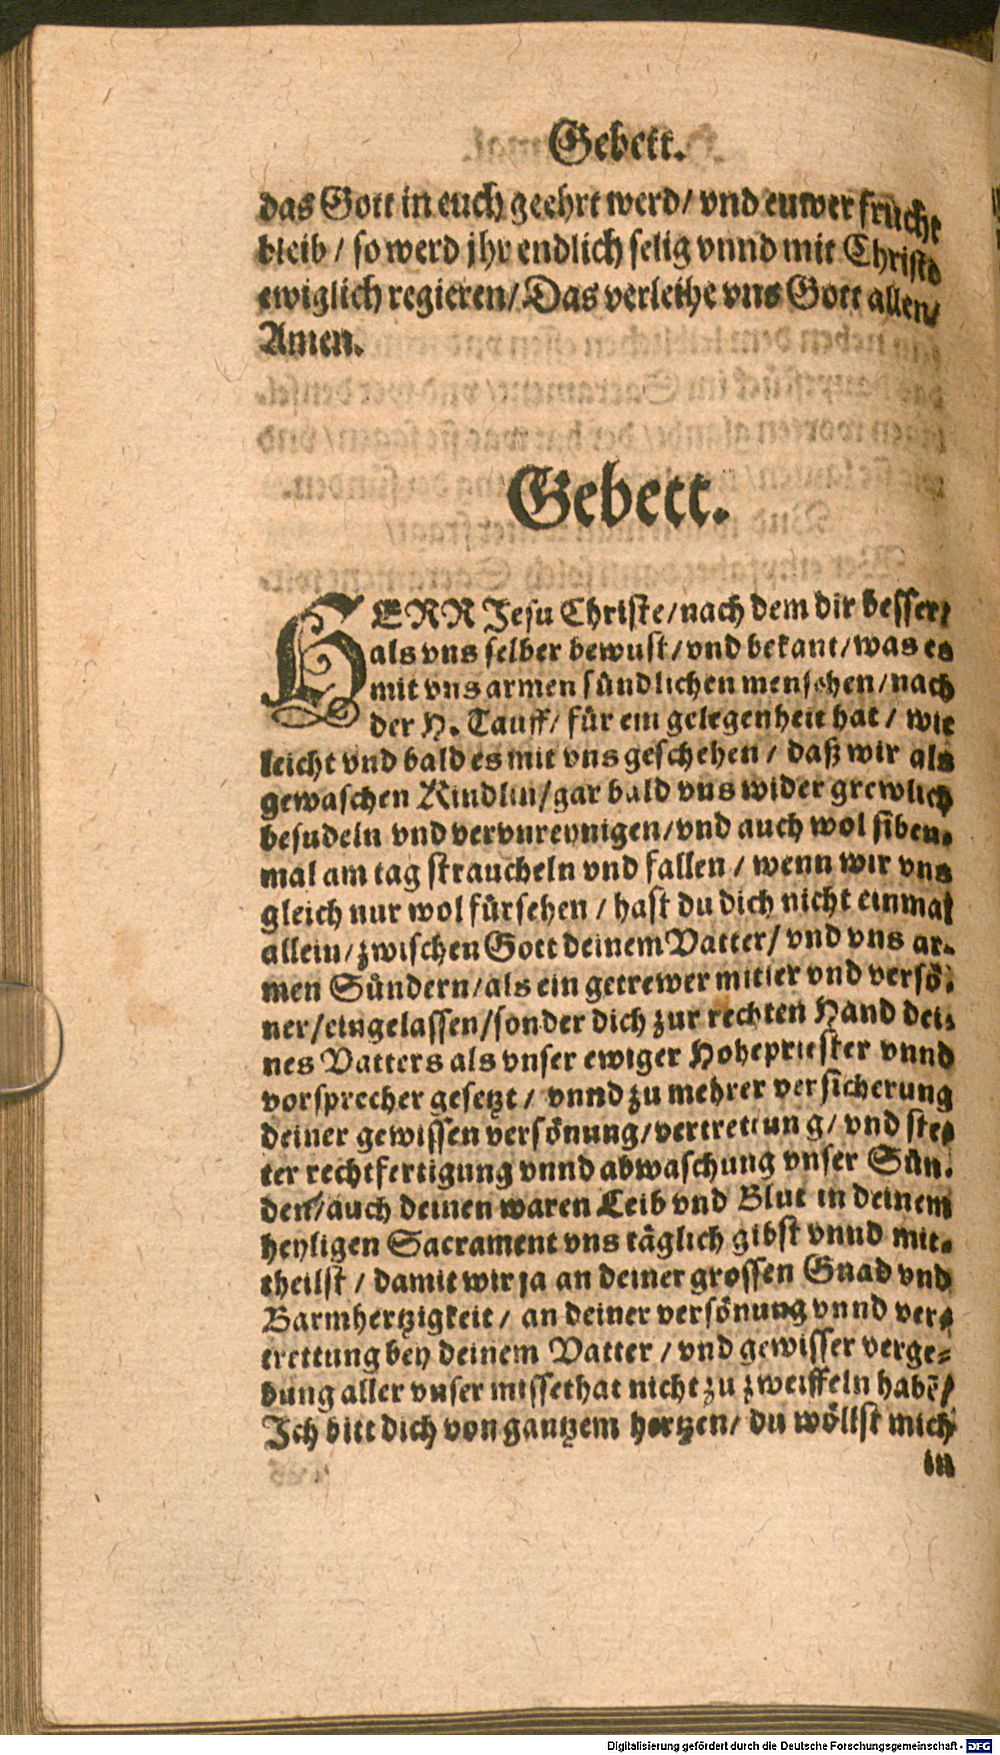 Gebett.
das Gott in euch geehrt werd/ vnd euwer frucht
bleib / so werd jhr endlich selig vnnd mit Christo
ewiglich regieren/ Das verleihe vns Gott allen/
Amen.
Gebett.
HERR Jesu Christe/nach dem dir besser/
als vns selber bewust/vnd bekant/was es
mit vns armen sündlichen menschen/nach
der H. Tauff/ für ein gelegenheit hat / wie
leicht vnd bald es mit vns geschehen / daß wir als
gewaschen Kindlin/gar bald vns wider grewlich
besudeln vnd vervnreynigen/vnd auch wol siben-
mal am tag straucheln vnd fallen / wenn wir vns
gleich nur wol fürsehen / hast du dich nicht einmal
allein/zwischen Gott deinem Vatter/ vnd vns ar-
men Sündern/als ein getrewer mitler vnd versö-
ner/eingelassen/sonder dich zur rechten Hand dei-
nes Vatters als vnser ewiger Hohepriester vnnd
vorsprecher gesetzt / vnnd zu mehrer versicherung
deiner gewissen versönung/vertrettung/ vnd ste-
ter rechtfertigung vnnd abwaschung vnser Sün-
den/auch deinen waren Leib vnd Blut in deinem
heyligen Sacrament vns täglich gibst vnnd mit-
theilst / damit wir ja an deiner grossen Gnad vnd
Barmhertzigkeit / an deiner versönung vnnd ver-
trettung bey deinem Vatter / vnd gewisser verge-
bung aller vnser missethat nicht zu zweiffeln habē/
Ich bitt dich von gantzem hertzen/ du wöllst mich
in
Digitalisierung gefördert durch die Deutsche Forschungsgemeinschaft - DFG